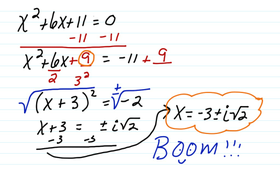 x² + 6x + 11 = 0
-11 -11
x² + 6x + 9 = -11 + 9
2 3²
√(x + 3)² = ±√-2
x + 3 = ± i√2
-3 -3
x = -3 ± i√2
BOOM!!!